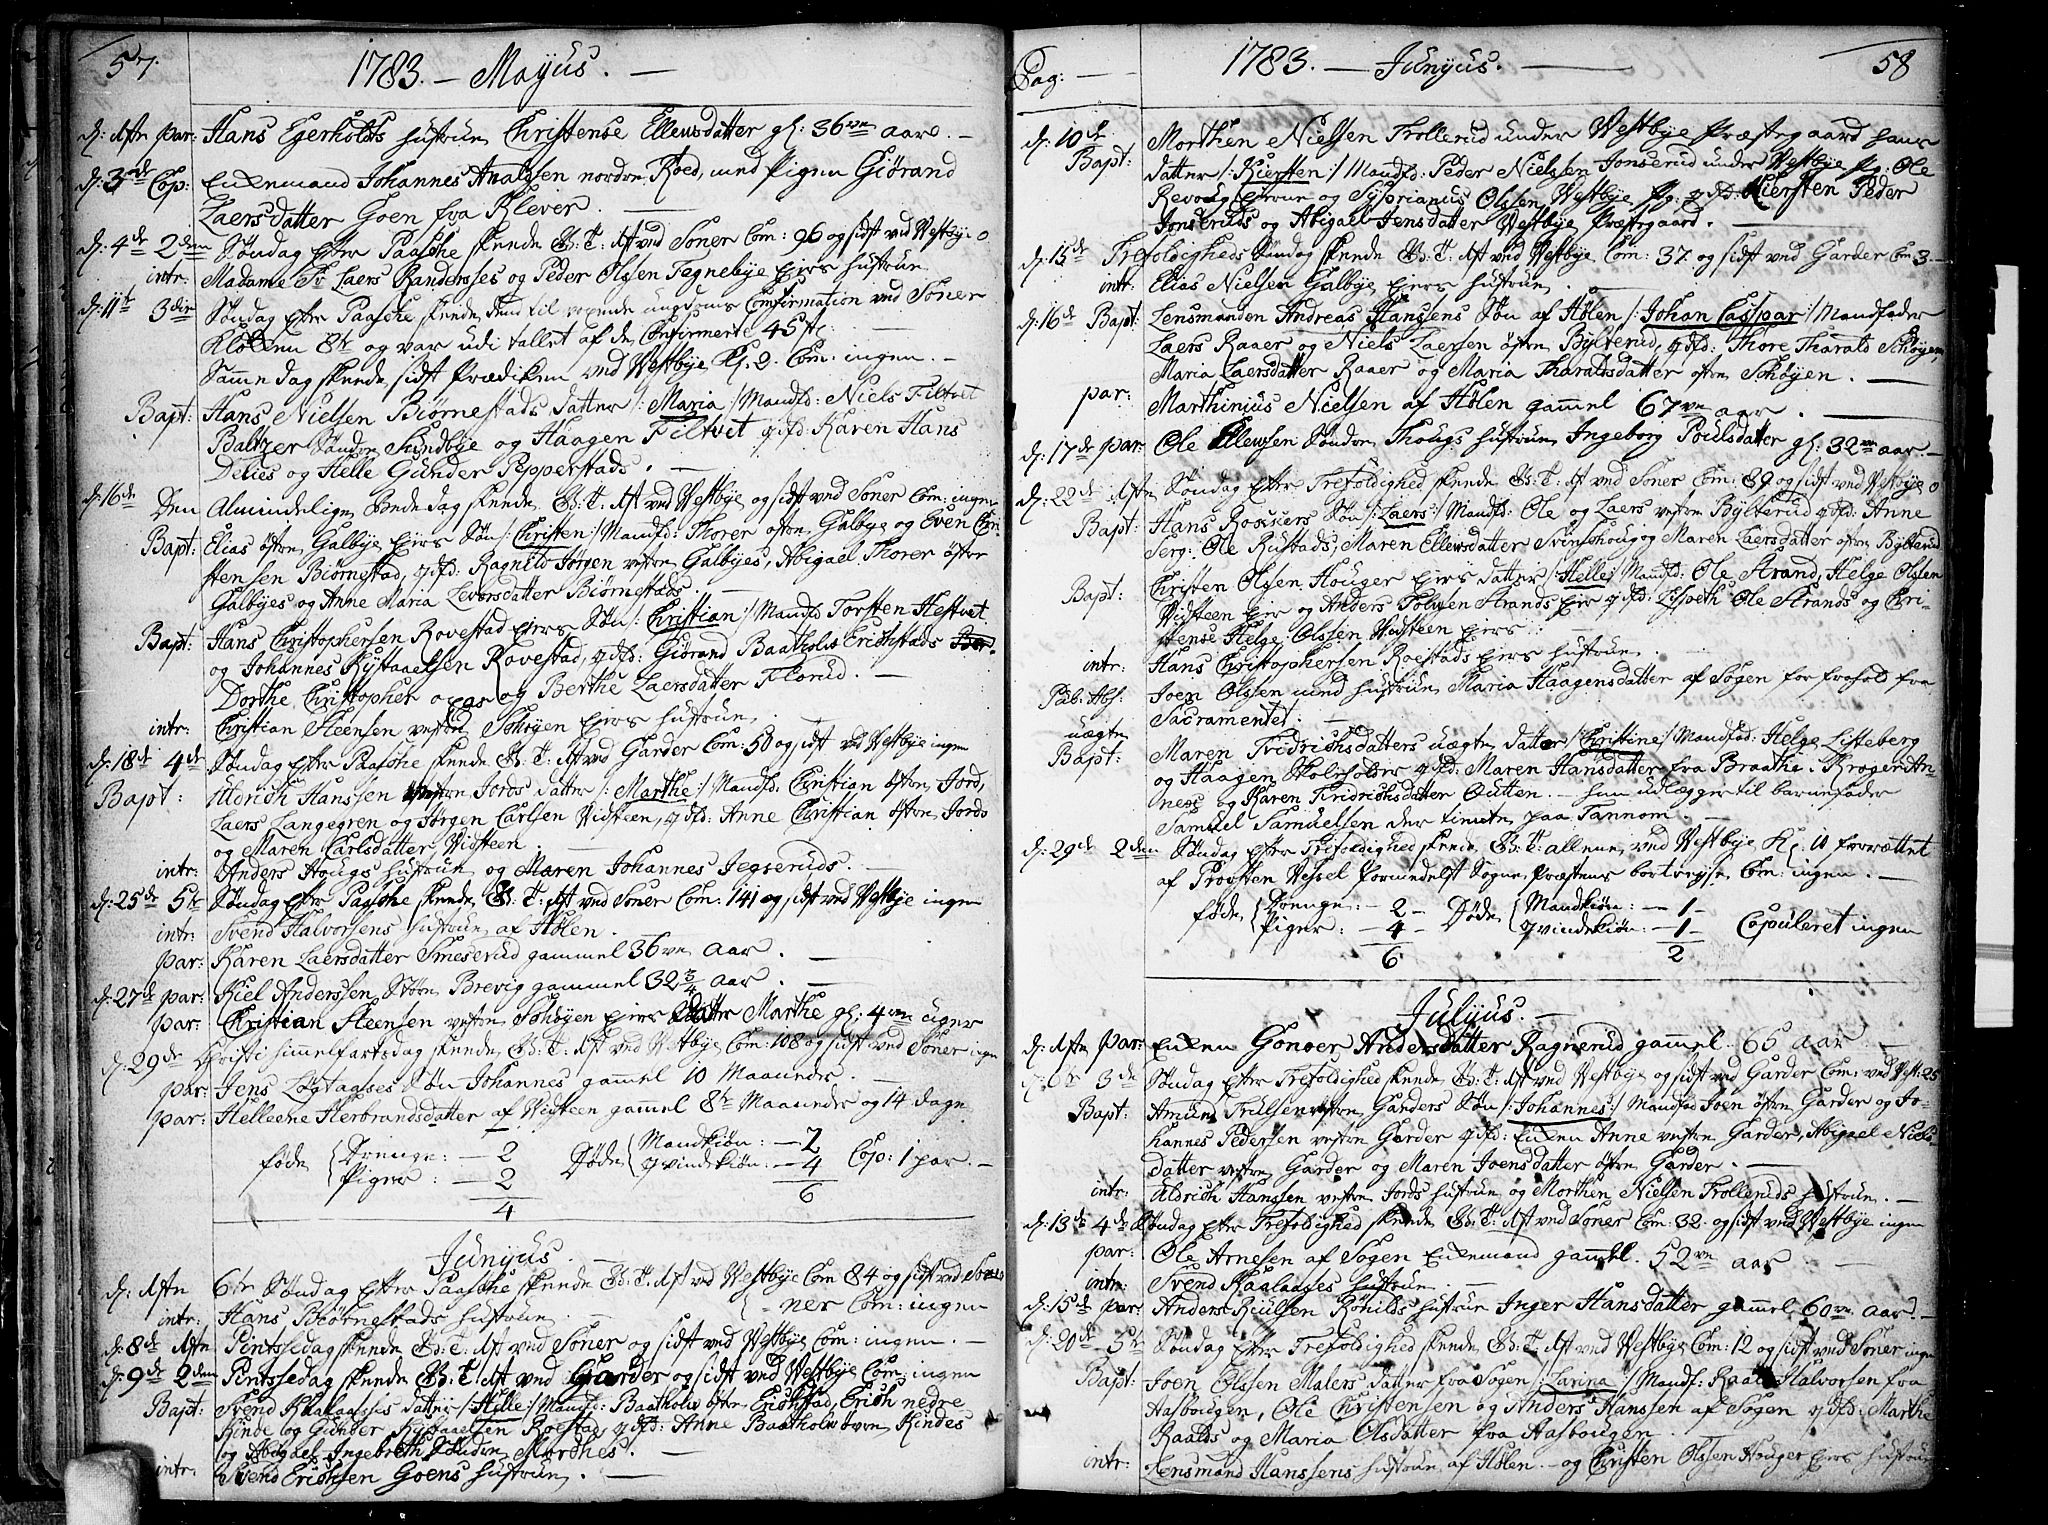 57.
1783. — Mayus. —
d: 1ste par: Hans Egerholts hustrue Christense Ellensdatter gl: 36 ve aar. —
d: 3de Cop: Enkemand Johannes Analsen nordre Roed, med Pigen Giørand
Laersdatter Goen fra Klever. —
d: 4de 2den Søndag efter Paasche skeede G: T: Aft ved Soner Com: 96 og sidst ved Vestbye 0
intr: Madame Laers Randersses og Peder Olssen Tegnebye Eiers hustrue
d: 11te 3die Søndag efter Paasche skeede den til voxende ungdoms Confirmation ved Soner
Klokken 8te og var udi tallet af de Confirmerte 45 st:
Samme dag skeede sidst Prædiken ved Vestbye Kl. 2. Com: ingen. —
Bapt: Hans Nielsen Biørnestads datter /: Maria :/ Mandf: Niels Filtvet
Baltzer Søndre Sundbye og Haagen Filtvet qvf: Karen Hans
Delies og Helle Gunder Pepperstads. —
d: 16de Den Almindelige Bededag skeede G: T: Aft ved Vestbye og sidst ved Soner Com: ingen
Bapt: Elias østre Galbye Eiers Søn /: Christen :/ Mandf: Thorer østre Galbye og Even Chri-
stensen Biørnestad, qvf: Ragnild Jørgen vestre Galbyes, Abigael Thorer østre
Galbyes og Anne Maria Levorsdatter Biørnestads.
Bapt: Hans Christophersen Rovestad Eiers Søn /: Christian :/ Mandf: Torsten Hestvet
og Johannes Rystaaelsen Rovestad, qvf: Giørand Baatholis Erichstads
Dorthe Christopher og Berthe Laersdatter Florud. —
intr: Christian Steensen vestre Schøyen Eiers hustrue.
d: 18de 4de Søndag efter Paasche skeede G: T: Aft ved Garder Com: 50 og sidst ved Vestbye ingen
Bapt: Uldrich Hanssen vestre Jords datter /: Marthe :/ Mandf: Christian østre Jord,
Laers Langegren og Jørgen Carlsen Vidsteen, qvf: Anne Christian østre Jords
og Maren Carlsdatter Vidsteen.
intr: Anders Hougs hustrue og Maren Johannes Jegseruds.
d: 25de 5te Søndag efter Paasche skeede G: T: Aft ved Soner Com: 141 og sidst ved Vestbye ingen
intr: Svend Halvorsens hustrue af Hølen.
par: Karen Laersdatter Smeserud gammel 36 ve aar. —
d: 27de par: Kiel Anderssen Støre Brevig gammel 32 3/4 aar. —
par: Christian Steensen vestre Schøyen Eiers datter Marthe gl: 4re uger
d: 29de Christi himmelfartsdag skeede G: T: Aft ved Vestbye Com: 108 og sidst ved Soner ingen
par: Jens Løgtaases Søn Johannes gammel 10 Maaneder. —
par: Helleene Herbrandsdatter af Vidsteen gammel 8te Maaneder og 14 dage
føde { Drenge: — 2 Døde { Mandkiøn: — 2 Cop: 1 par. —
Piger: — 2 qvindekiøn: — 4
4 6
Junyus.
d: 1ste 6te Søndag efter Paasche skeede G: T: Aft ved Vestbye Com: 84 og sidst ved So-
ner Com: ingen
intr: Hans Biørnestads hustrue.
d: 8de 1ste Pintsedag skeede G: T: Aft ved Soner og sidst ved Vestbye Com: ingen. —
d: 9de 2den Pintsedag skeede G: T: Aft ved Garder og sidst ved Vestbye Com: ingen
Bapt: Svend Kaalaases datter /: Hille :/ Mandf: Baathole østre Erichstad, Erich nedre
Kinde og Gunder Rystaaelsen Roestad qvf: Anne Baathole øvre Kindes
og Abigael Ingebreth Søndre Mordhes. —
intr: Svend Erichsen Goens hustrue. —
Pag: —
1783. — Junyus. —
58
d: 10de Morthen Nielsen Trollerud under Vestbye Præstegaard hans
Bapt: datter /: Kiersten :/ Mandf: Peder Nielsen Jonserud under Vestbye Pg: Ole
Revoug Errue og Syprianus Olssen Vestbye Pg. qvf: Kiersten Peder
Jonseruds og Abigael Jensdatter Vestbye Præstegaard. —
d: 15de Trefoldigheds Søndag skeede G: T: Aft ved Vestbye Com: 37 og sidst ved Garder Com 3. —
intr: Elias Nielsen Galbye Eiers hustrue.
d: 16de Bapt: Lensmanden Andreas Hanssens Søn af Hølen /: Johan Casspar :/ Mandfader
Laers Raaer og Niels Laersen østre Bylterud, qvf: Thore Tharald Schøyen,
Maria Laersdatter Raaer og Maria Tharaldsdatter østre Schøyen. —
par: Marthinius Nielsen af Hølen gammel 67 ve aar. —
d: 17de par: Ole Ellevsen Søndre Thougs hustrue Ingeborg Poulsdatter gl: 32 ve aar. —
d: 22de 1ste Søndag efter Trefoldighed skeede G: T: Aft ved Soner Com: 89 og sidst ved Vestbye 0
Bapt: Hans Rossers Søn /: Laers :/ Mandf: Ole og Laers vestre Bylterud qvf: Anne
Serg: Ole Rustads, Maren Ellevsdatter Svinshoug og Maren Laersdatter østre Bylterud
Bapt: Christen Olssen Houger Eiers datter /: Helle :/ Mandf: Ole Strand, Helge Olssen
Vidsteen Eier og Anders Tolvsen Strands Eier qvf: Lispeth Ole Strands og Chri-
stense Helge Olssen Vidsteen Eiers.
intr: Hans Christophersen Roestads Eiers hustrue.
Pub: Abs: Joen Olssen med hustrue Maria Haagensdatter af Sogen for frahold fra
Sacramentet. —
uægte
Bapt: Maren Fridrichsdatters uægte datter /: Christine :/ Mandfad: Helge Listeberg
og Haagen Skolehold qvf: Maren Hansdatter fra Braathe, Krogen An-
nes og Karen Fridrichsdatter Qutten. — han udlægger til barnefader
Samuel Samuelsen der tiente paa Tannom. —
d: 29de 2den Søndag efter Trefoldighed skeede G: T: alleene ved Vestbye Kl: 10 forrettet
af Provsten Vessel formedelst Sogne Præstens bortreyse, Com: ingen. —
føde { Drenge: — 2 — Døde { Mandkiøn: — 1 — Copuleret ingen
Piger: — 4 — qvindekiøn: — 1 —
6 2
Julyus. —
d: 1ste par: Enken Gonoer Andersdatter Ragnerud gammel 65 aar. —
d: 6te 3de Søndag efter Trefoldighed skeede G: T: Aft ved Vestbye og sidst ved Garder Com: ved Vest: 25
Bapt: Amund Trulsen vestre Garders Søn /: Johannes :/ Mandfad Joen østre Garder og Jo-
hannes Pedersen vestre Garder qvf: Enken Anne vestre Garder, Abigael Niels
datter vestre Garder og Maren Joensdatter østre Garder. —
intr: Uldrich Hanssen vestre Jords hustrue og Morthen Nielsen Trolleruds hustrue. —
d: 13de 4de Søndag efter Trefoldighed skeede G: T: Aft ved Soner Com: 32. og sidst ved Vestbye ingen
par: Ole Arnesen af Sogen Enkemand gammel 52 ve aar —
intr: Svend Kaalaases hustrue. —
d: 15de par: Anders Riulsen Rønilds hustrue Inger Hansdatter gammel 60 ve aar. —
d: 20de 5te Søndag efter Trefoldighed skeede G: T: Aft ved Vestbye Com: 12 og sidst ved Soner ingen
Bapt: Joen Olssen Malers datter fra Sogen /: Sarina :/ Mandf: Raald Halvorsen fra
Hasbougen, Ole Christensen og Anders Hanssen af Sogen qvf: Marthe
Raalds og Maria Olsdatter fra Hasbougen.
intr: Lensmand Hanssens hustrue af Hølen. — og Christen Olssen Houger Eiers hustrue